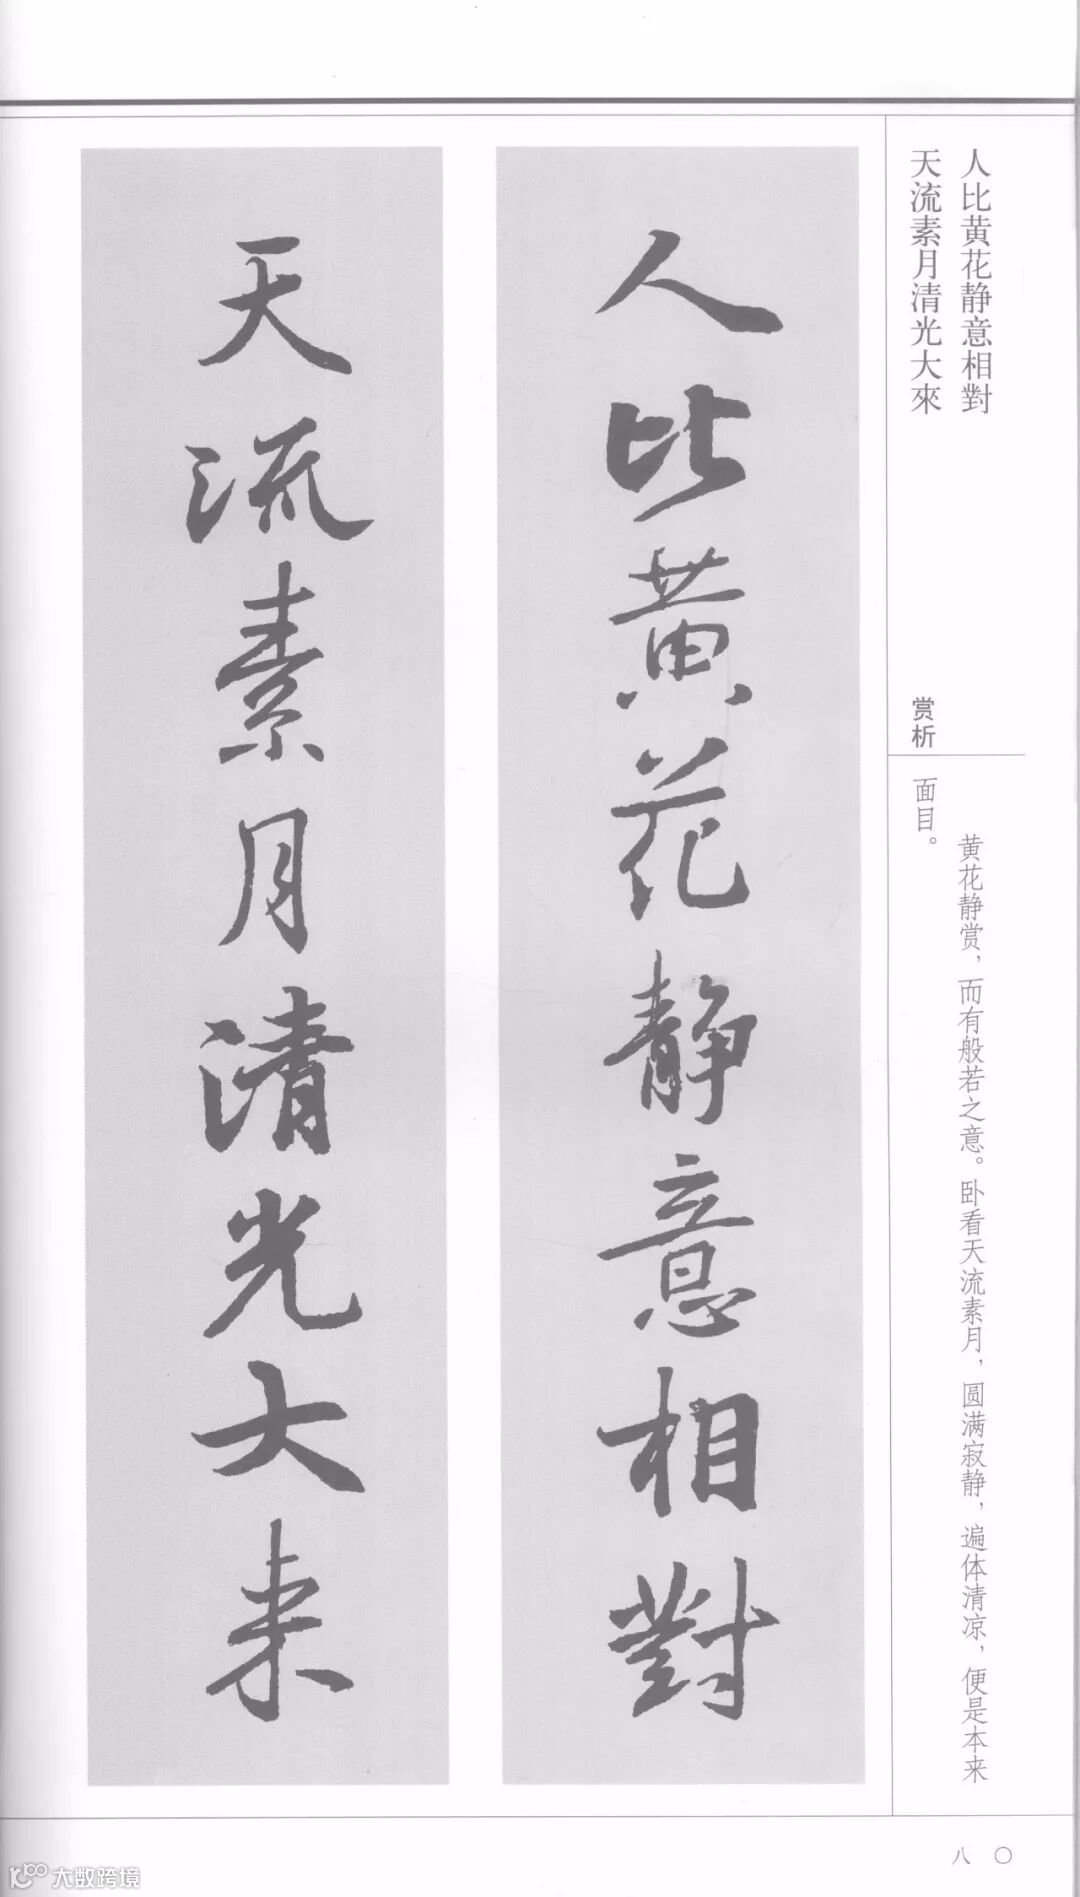 人比黄花静意相對
天流素月清光大來
赏析
黄花静赏，而有般若之意。卧看天流素月，圆满寂静，遍体清凉，便是本来
面目。
人比黄花静意相對
天流素月清光大来
八〇
大数跨境